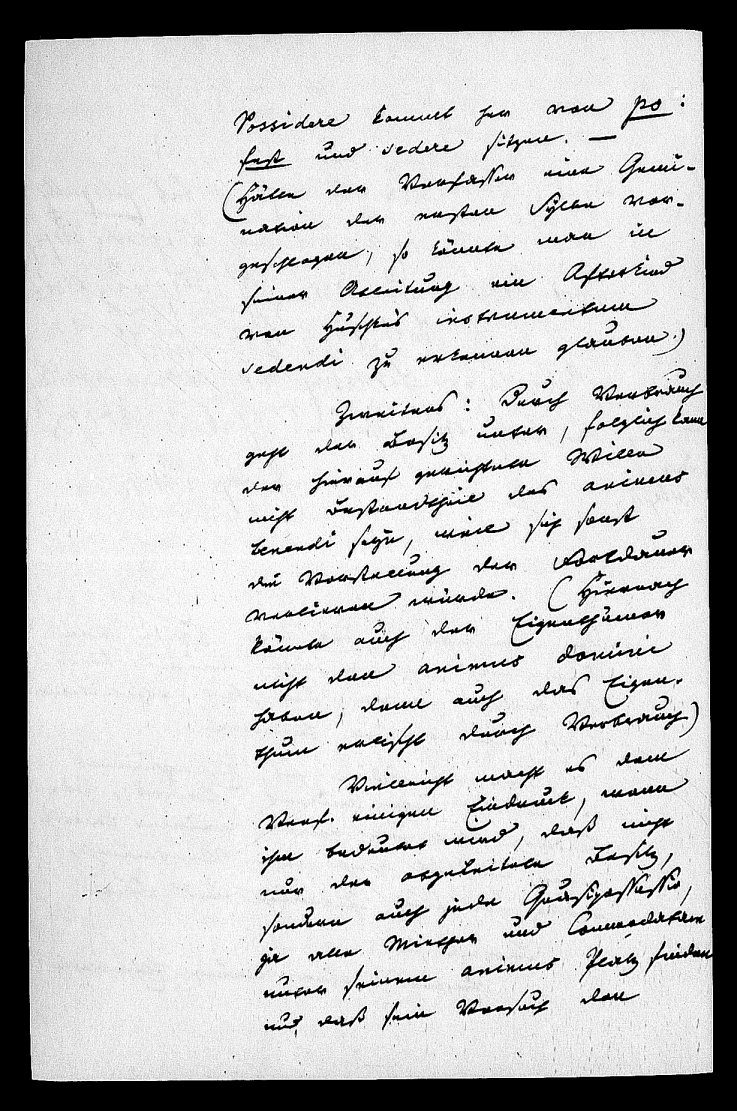 Possidere kommt her von po:
fest und sedere sitzen. —
(Hätte der Verfasser eine Gemi-
nation der ersten Sylbe vor-
geschlagen, so könnte man in
seiner Ableitung ein Afterkind
von Huschkes instrumentum
sedendi zu erkennen glauben.)
Zweitens: Durch Verbrauch
geht der Besitz unter, folglich kann
der hierauf gerichtete Wille
nicht Bestandtheil des animus
tenendi seyn, weil sich sonst
die Vorstellung der Fortdauer
verlieren würde. (Hiernach
könnte auch der Eigenthümer
nicht den animus domini
haben, denn auch das Eigen-
thum erlischt durch Verbrauch)
Vielleicht macht es dem
Verf. einigen Eindruck, wenn
ihm bedeutet wird, daß nicht
nur der abgeleitete Besitz,
sondern auch jede Quasipossessio,
ja alle Miether und Commodatare
unter seinem animus Platz finden
und daß sein Versuch den